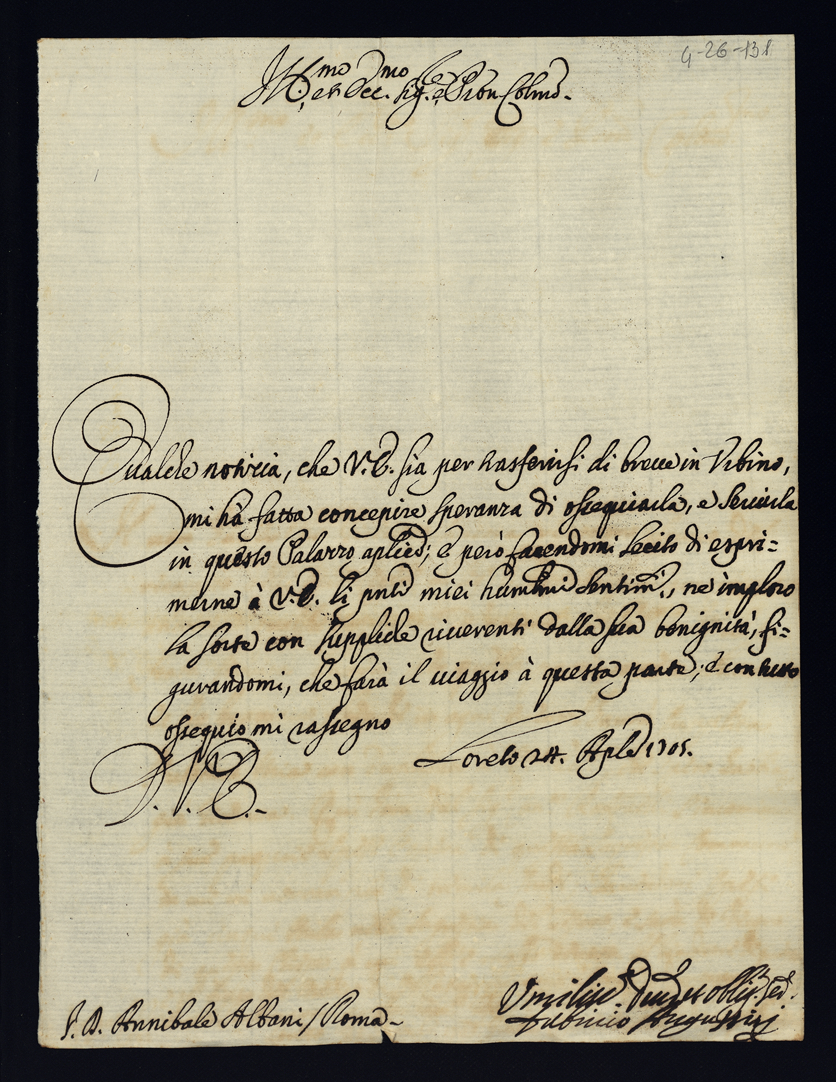 4-26-131
Ill.mo et Ecc.mo Sig.re e Pron Colmo.
Qualche noticia, che V.E. sia per trasferirsi di breve in Urbino,
mi hà fatta concepire speranza di ossequiarla, e servirla
in questo Palazzo aplico; e però facendomi lecito di espri=
merne à V.E. li pnti miei humilmi sentimti, ne imploro
la sorte con suppliche riverenti dalla sua benignità, fi=
gurandomi, che farà il viaggio à questa parte; e con tutto
ossequio mi rassegno
Loreto 24. Aple 1705.
D. V. E.
S. D. Annibale Albani / Roma
Umiliss. Dev. et obblig. Se.
Fabricio